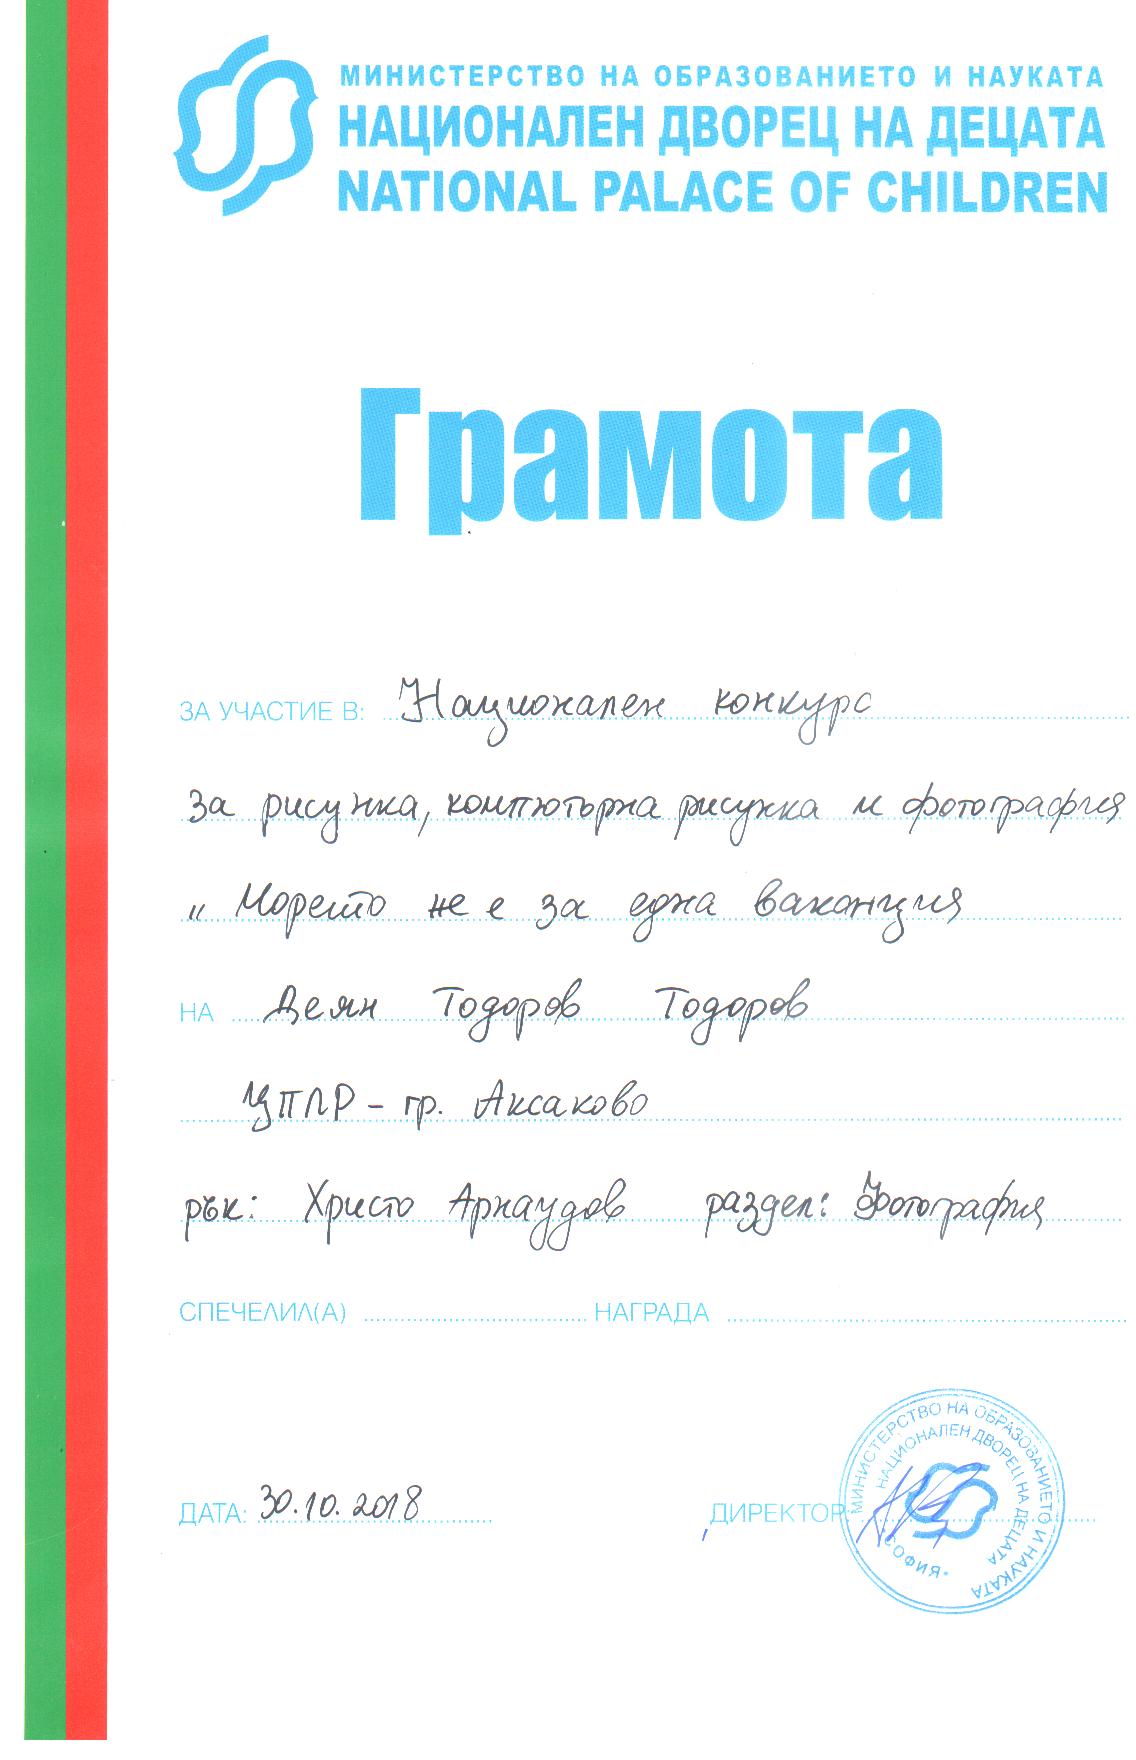 МИНИСТЕРСТВО НА ОБРАЗОВАНИЕТО И НАУКАТА
НАЦИОНАЛЕН ДВОРЕЦ НА ДЕЦАТА
NATIONAL PALACE OF CHILDREN
Грамота
ЗА УЧАСТИЕ В: Национален конкурс
за рисунка, компютърна рисунка и фотография
„ Морето не е за една ваканция
НА Деян Тодоров Тодоров
ЦПЛР - гр. Аксаково
рък: Христо Арнаудов раздел: Фотография
СПЕЧЕЛИЛ(А) НАГРАДА
ДАТА: 30.10.2018 ДИРЕКТОР:
МИНИСТЕРСТВО НА ОБРАЗОВАНИЕТО И НАУКАТА
НАЦИОНАЛЕН ДВОРЕЦ НА ДЕЦАТА
СОФИЯ